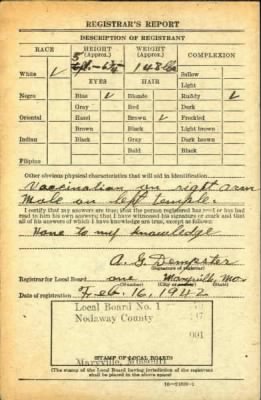 REGISTRAR'S REPORT
DESCRIPTION OF REGISTRANT
RACE HEIGHT (Approx.) WEIGHT (Approx.) COMPLEXION
5 148 lbs
White ✓ Sallow
EYES HAIR Light
Negro Blue ✓ Blonde Ruddy ✓
Gray Red Dark
Oriental Hazel Brown ✓ Freckled
Brown Black Light brown
Indian Black Gray Dark brown
Bald Black
Filipino
Other obvious physical characteristics that will aid in identification
Vaccination on right arm
Mole on left temple.
I certify that my answers are true; that the person registered has read or has had
read to him his own answers; that I have witnessed his signature or mark and that
all of his answers of which I have knowledge are true, except as follows:
None to my knowledge
A. G. Dempster
(Signature of registrar)
Registrar for Local Board one Maryville, Mo.
(Number) (City or county) (State)
Date of registration Feb. 16, 1942
Local Board No. 1
Nodaway County
001
STAMP OF LOCAL BOARD
Maryville, Missouri
(The stamp of the Local Board having jurisdiction of the registrant
shall be placed in the above space)